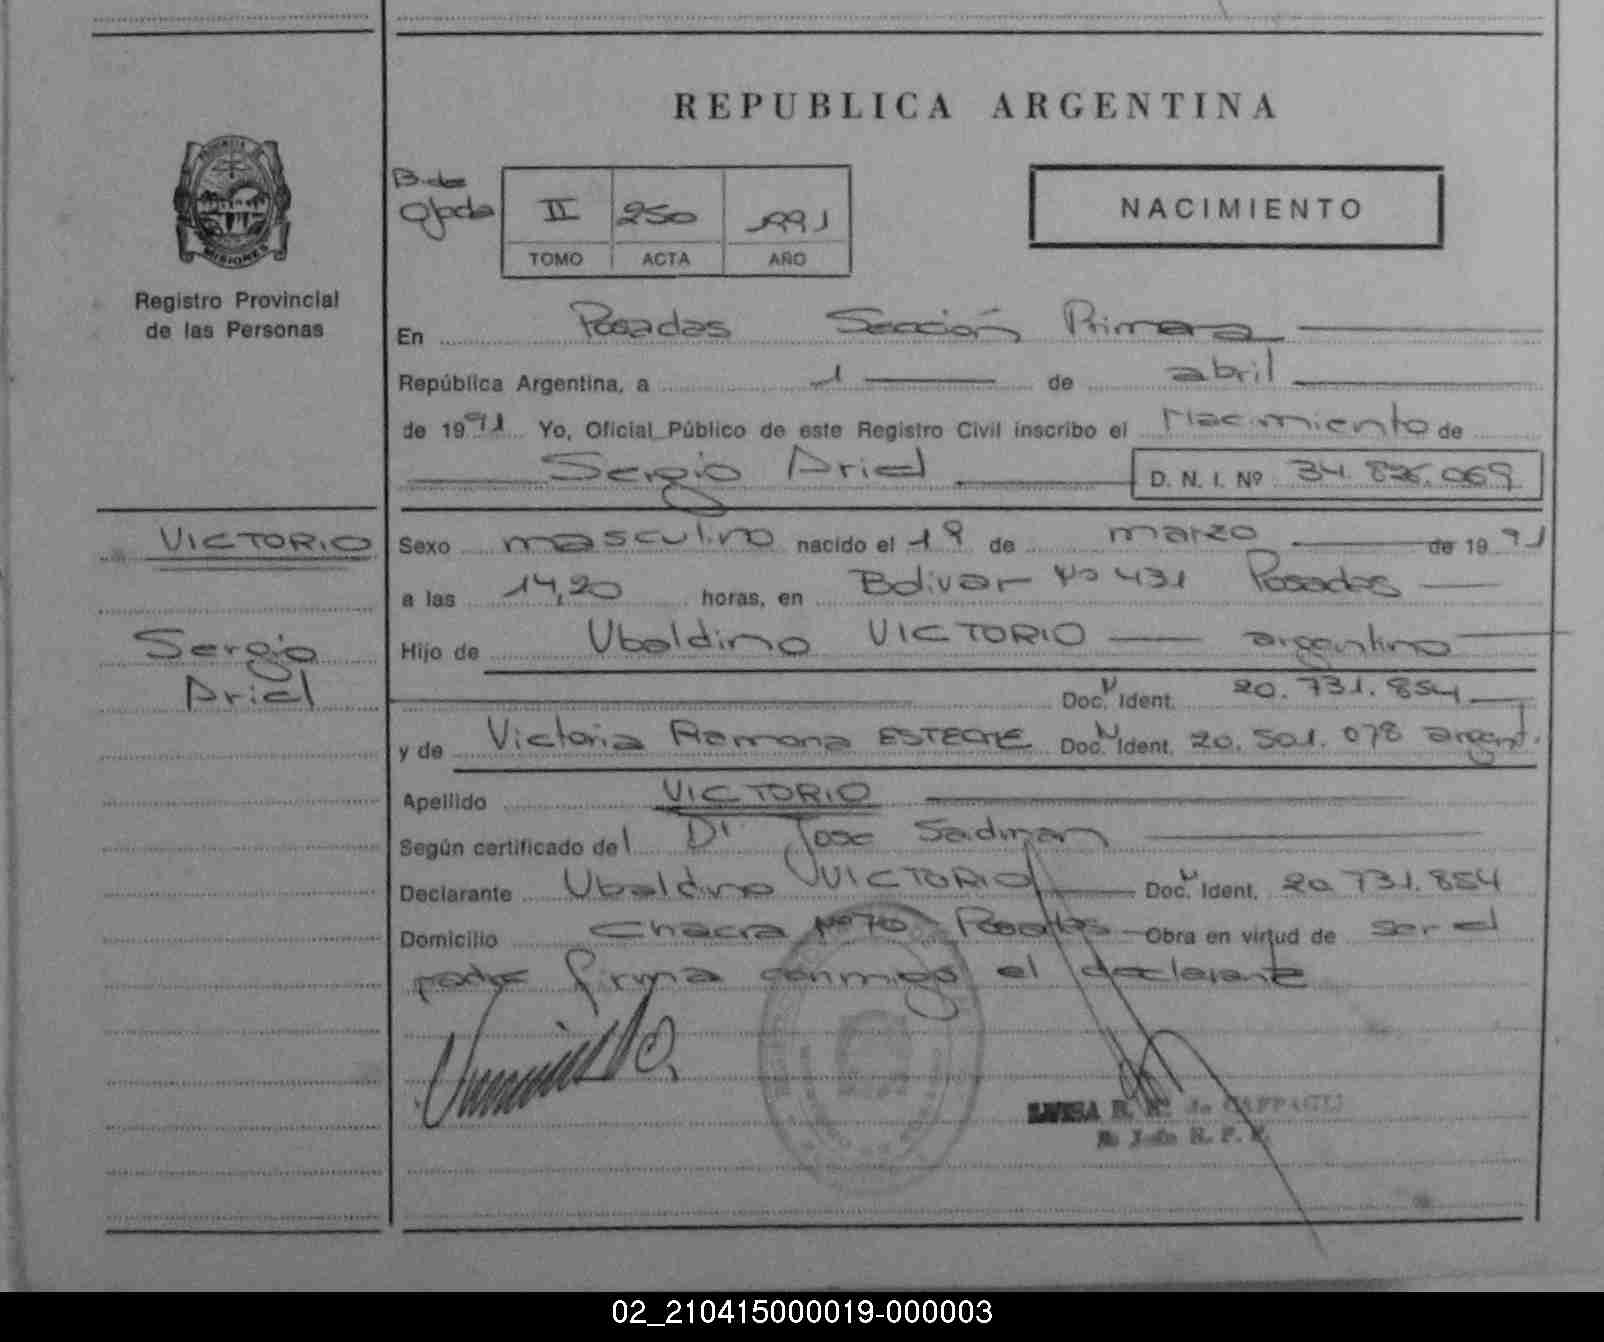 REPUBLICA ARGENTINA
PROVINCIA
MISIONES
Registro Provincial
de las Personas
B. de
II 250 1991
TOMO ACTA AÑO
NACIMIENTO
En Posadas Sección Primera
República Argentina, a 1 de abril
de 1991 Yo, Oficial Público de este Registro Civil inscribo el Nacimiento de
Sergio Ariel D. N. I. Nº 34.826.069
VICTORIO
Sergio
Ariel
Sexo masculino nacido el 19 de marzo de 1991
a las 14,20 horas, en Bolivar Nº 431 Posadas
Hijo de Ubaldino VICTORIO argentino
Doc. Ident. 20.731.854
y de Victoria Ramona ESTECHE Doc. Ident. 20.501.078 argent.
Apellido VICTORIO
Según certificado del Dr. Jose Sadman
Declarante Ubaldino VICTORIO Doc. Ident. 20.731.854
Domicilio Chacra Nº 70 Posadas Obra en virtud de ser el
padre firma conmigo el declarante
R. P. P.
02_210415000019-000003